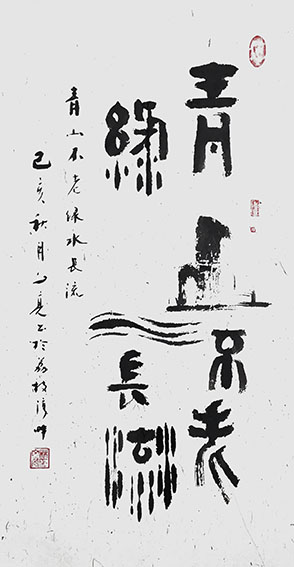 青山不老
綠水長流
青山不老綠水長流
己亥秋月